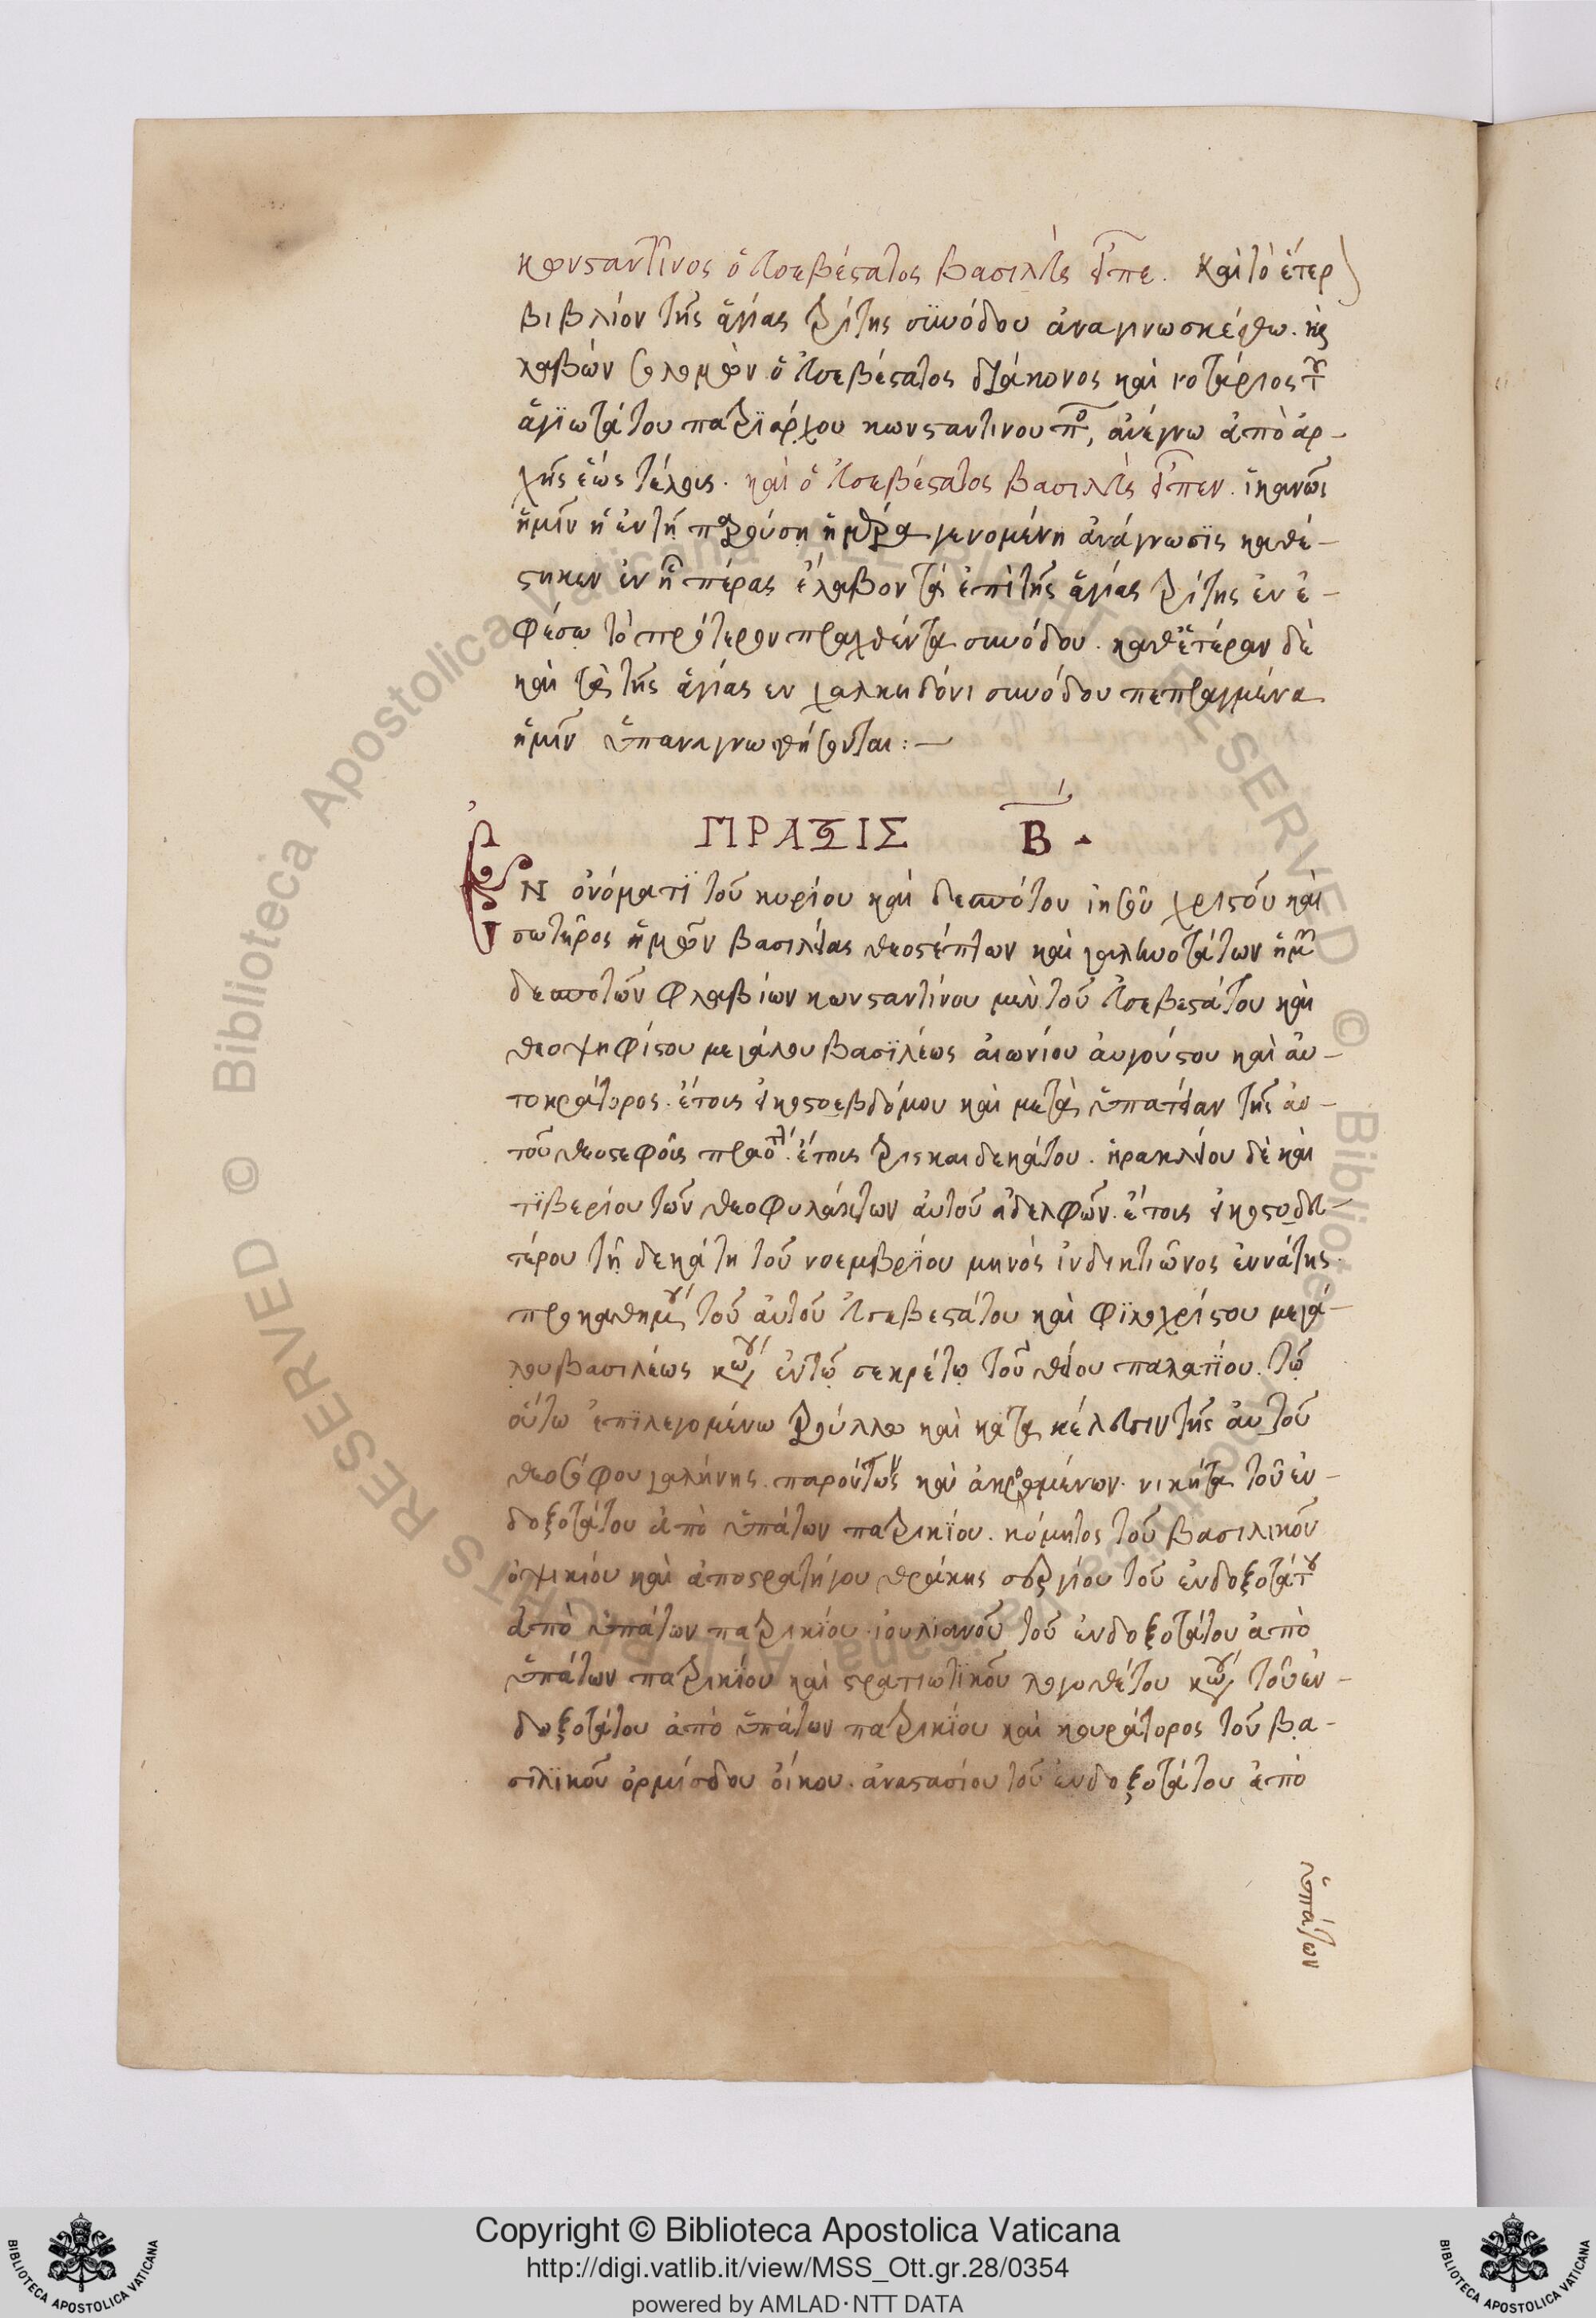 κωνσταντῖνος ὁ εὐσεβέστατος βασιλεὺς εἶπε. Καὶ τὸ ἕτερον
βιβλίον τῆς ἁγίας τρίτης συνόδου ἀναγινωσκέσθω. καὶ
λαβὼν σολομῶν ὁ εὐσεβέστατος διάκονος καὶ νοτάριος τοῦ
ἁγιωτάτου πατριάρχου κωνσταντινουπό, ἀνέγνω ἀπὸ ἀρ-
χῆς ἕως τέλους. καὶ ὁ εὐσεβέστατος βασιλεὺς εἶπεν. ἱκανῶς
ἡμῖν ἡ ἐν τῇ παρούση ἡμέρα γενομένη ἀνάγνωσις καθέ-
στηκεν ἐν ᾗ πέρας ἔλαβον τὰ ἐπὶ τῆς ἁγίας τρίτης ἐν ἐ-
φέσω τὸ πρότερον πραχθέντα συνόδου. καθ' ἑτέραν δὲ
καὶ τὰ τῆς ἁγίας εν χαλκηδόνι συνόδου πεπραγμένα
ἡμῖν ὑπαναγνωσθήσονται:—
ΠΡΑΞΙΣ Β
Ἐν ὀνόματι τοῦ κυρίου καὶ δεσπότου ἰησοῦ χριστοῦ καὶ
σωτῆρος ἡμῶν βασιλείας θεοστέπτων καὶ γαληνοτάτων ἡμῶν
δεσποτῶν φλαβίων κωνσταντίνου μὲν τοῦ εὐσεβεστάτου καὶ
θεοψηφίστου μεγάλου βασιλέως αἰωνίου αὐγούστου καὶ αὐ-
τοκράτορος. ἔτους εἰκοστοεβδόμου καὶ μετὰ ὑπατείαν τῆς αὐ-
τοῦ θεοσεφοῦς πραότ. ἔτους τρισκαιδεκάτου. ἡρακλείου δὲ καὶ
τιβερίου τῶν θεοφυλάκτων αὐτοῦ ἀδελφῶν. ἔτους εἰκοστοδευ-
τέρου τῇ δεκάτη τοῦ νοεμβρίου μηνὸς ἰνδικτιῶνος ἐννάτης.
προκαθημένου τοῦ αὐτοῦ εὐσεβεστάτου καὶ φιλοχρίστου μεγά-
λου βασιλέως κων ἐν τῷ σεκρέτῳ τοῦ θείου παλατίου. τῷ
οὕτω ἐπιλεγομένω τρούλλω καὶ κατὰ κέλευσιν τῆς αὐτοῦ
θεοσόφου γαλήνης. παρόντων καὶ ἀκροωμένων. νικήτα τοῦ ἐν-
δοξοτάτου ἀπὸ ὑπάτων πατρικίου. κόμητος τοῦ βασιλικοῦ
ὀψικίου καὶ ἀποστρατήγου θράκης σεργίου τοῦ ἐνδοξοτάτου
ἀπὸ ὑπάτων πατρικίου. ἰουλιανοῦ τοῦ ἐνδοξοτάτου ἀπὸ
ὑπάτων πατρικίου καὶ στρατιωτικοῦ λογοθέτου κων τοῦ ἐν-
δοξοτάτου ἀπὸ ὑπάτων πατρικίου καὶ κουράτορος τοῦ βα-
σιλικοῦ ὁρμίσδου οἴκου. ἀναστασίου τοῦ ἐνδοξοτάτου ἀπὸ
ὑπάτων
Copyright © Biblioteca Apostolica Vaticana
http://digi.vatlib.it/view/MSS_Ott.gr.28/0354
powered by AMLAD·NTT DATA